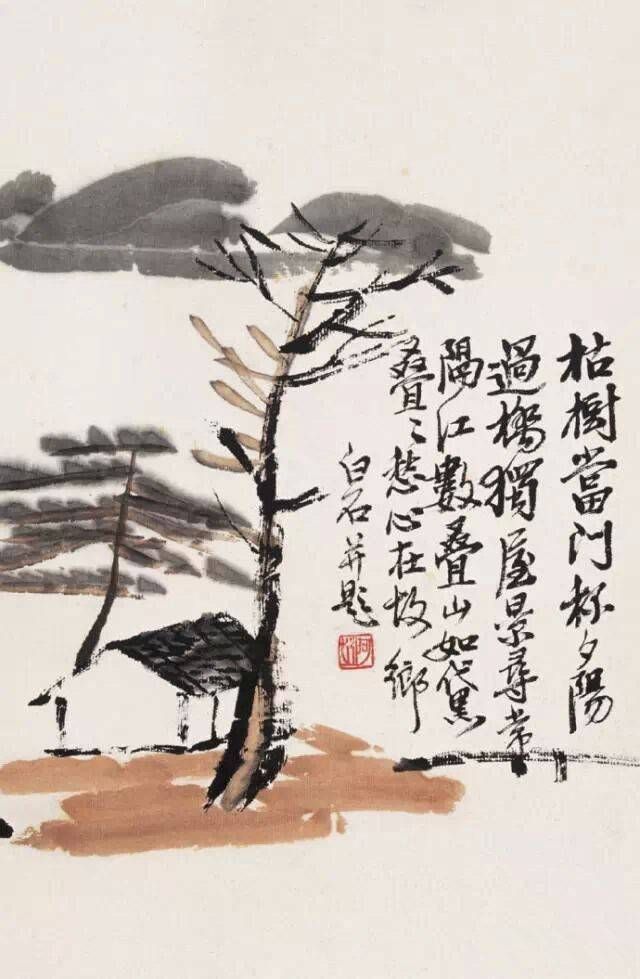 枯樹當門夕陽
過橋獨屋景尋常
隔江數疊山如黛
疊〻愁心在故鄉
白石并題
阿芝